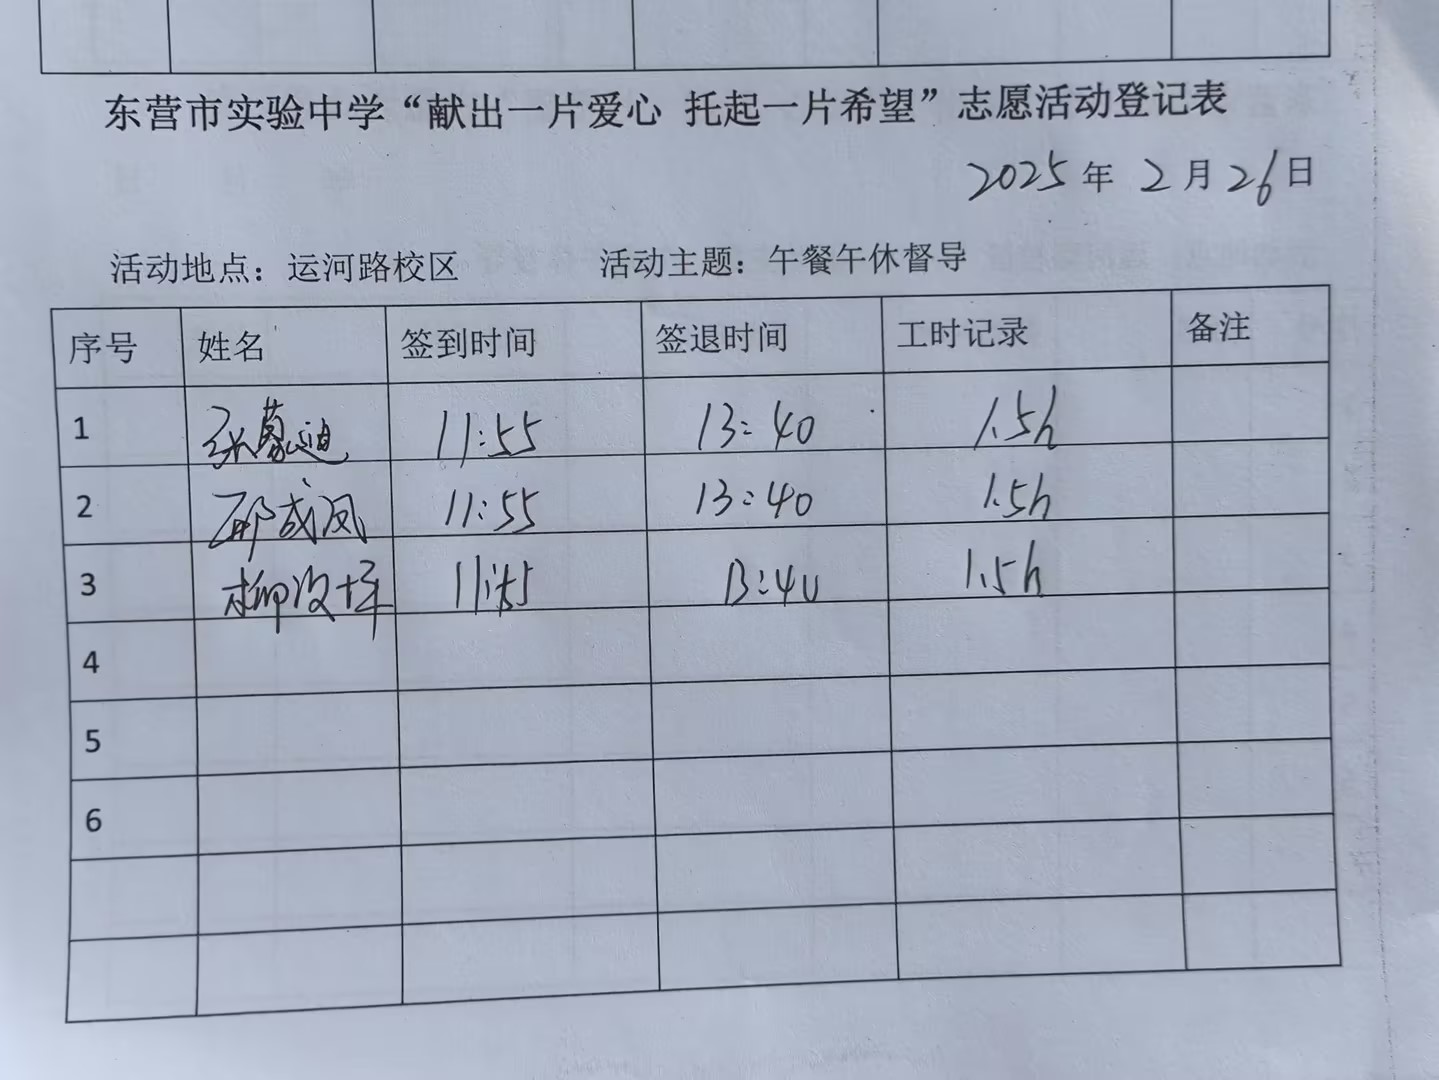 东营市实验中学“献出一片爱心 托起一片希望”志愿活动登记表
2025年 2月26日
活动地点：运河路校区 活动主题：午餐午休督导
序号 姓名 签到时间 签退时间 工时记录 备注
1 张蒙迪 11:55 13:40 1.5h
2 邵成凤 11:55 13:40 1.5h
3 柳 11:55 13:40 1.5h
4
5
6